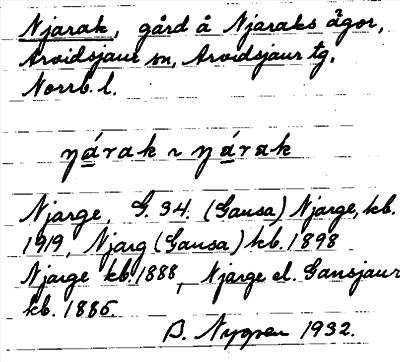 Njarak, gård å Njaraks ägor,
Arvidsjaur sn, Arvidsjaur tg,
Norrb. l.
ŋárak ~ ŋárak
Njarge, G. 34. (Gausa) Njarge, kb.
1919, Njarg (Gausa) kb. 1898
Njarge kb. 1888, Njarge el. Gansjaur
kb. 1885.
B. Nygren 1932.